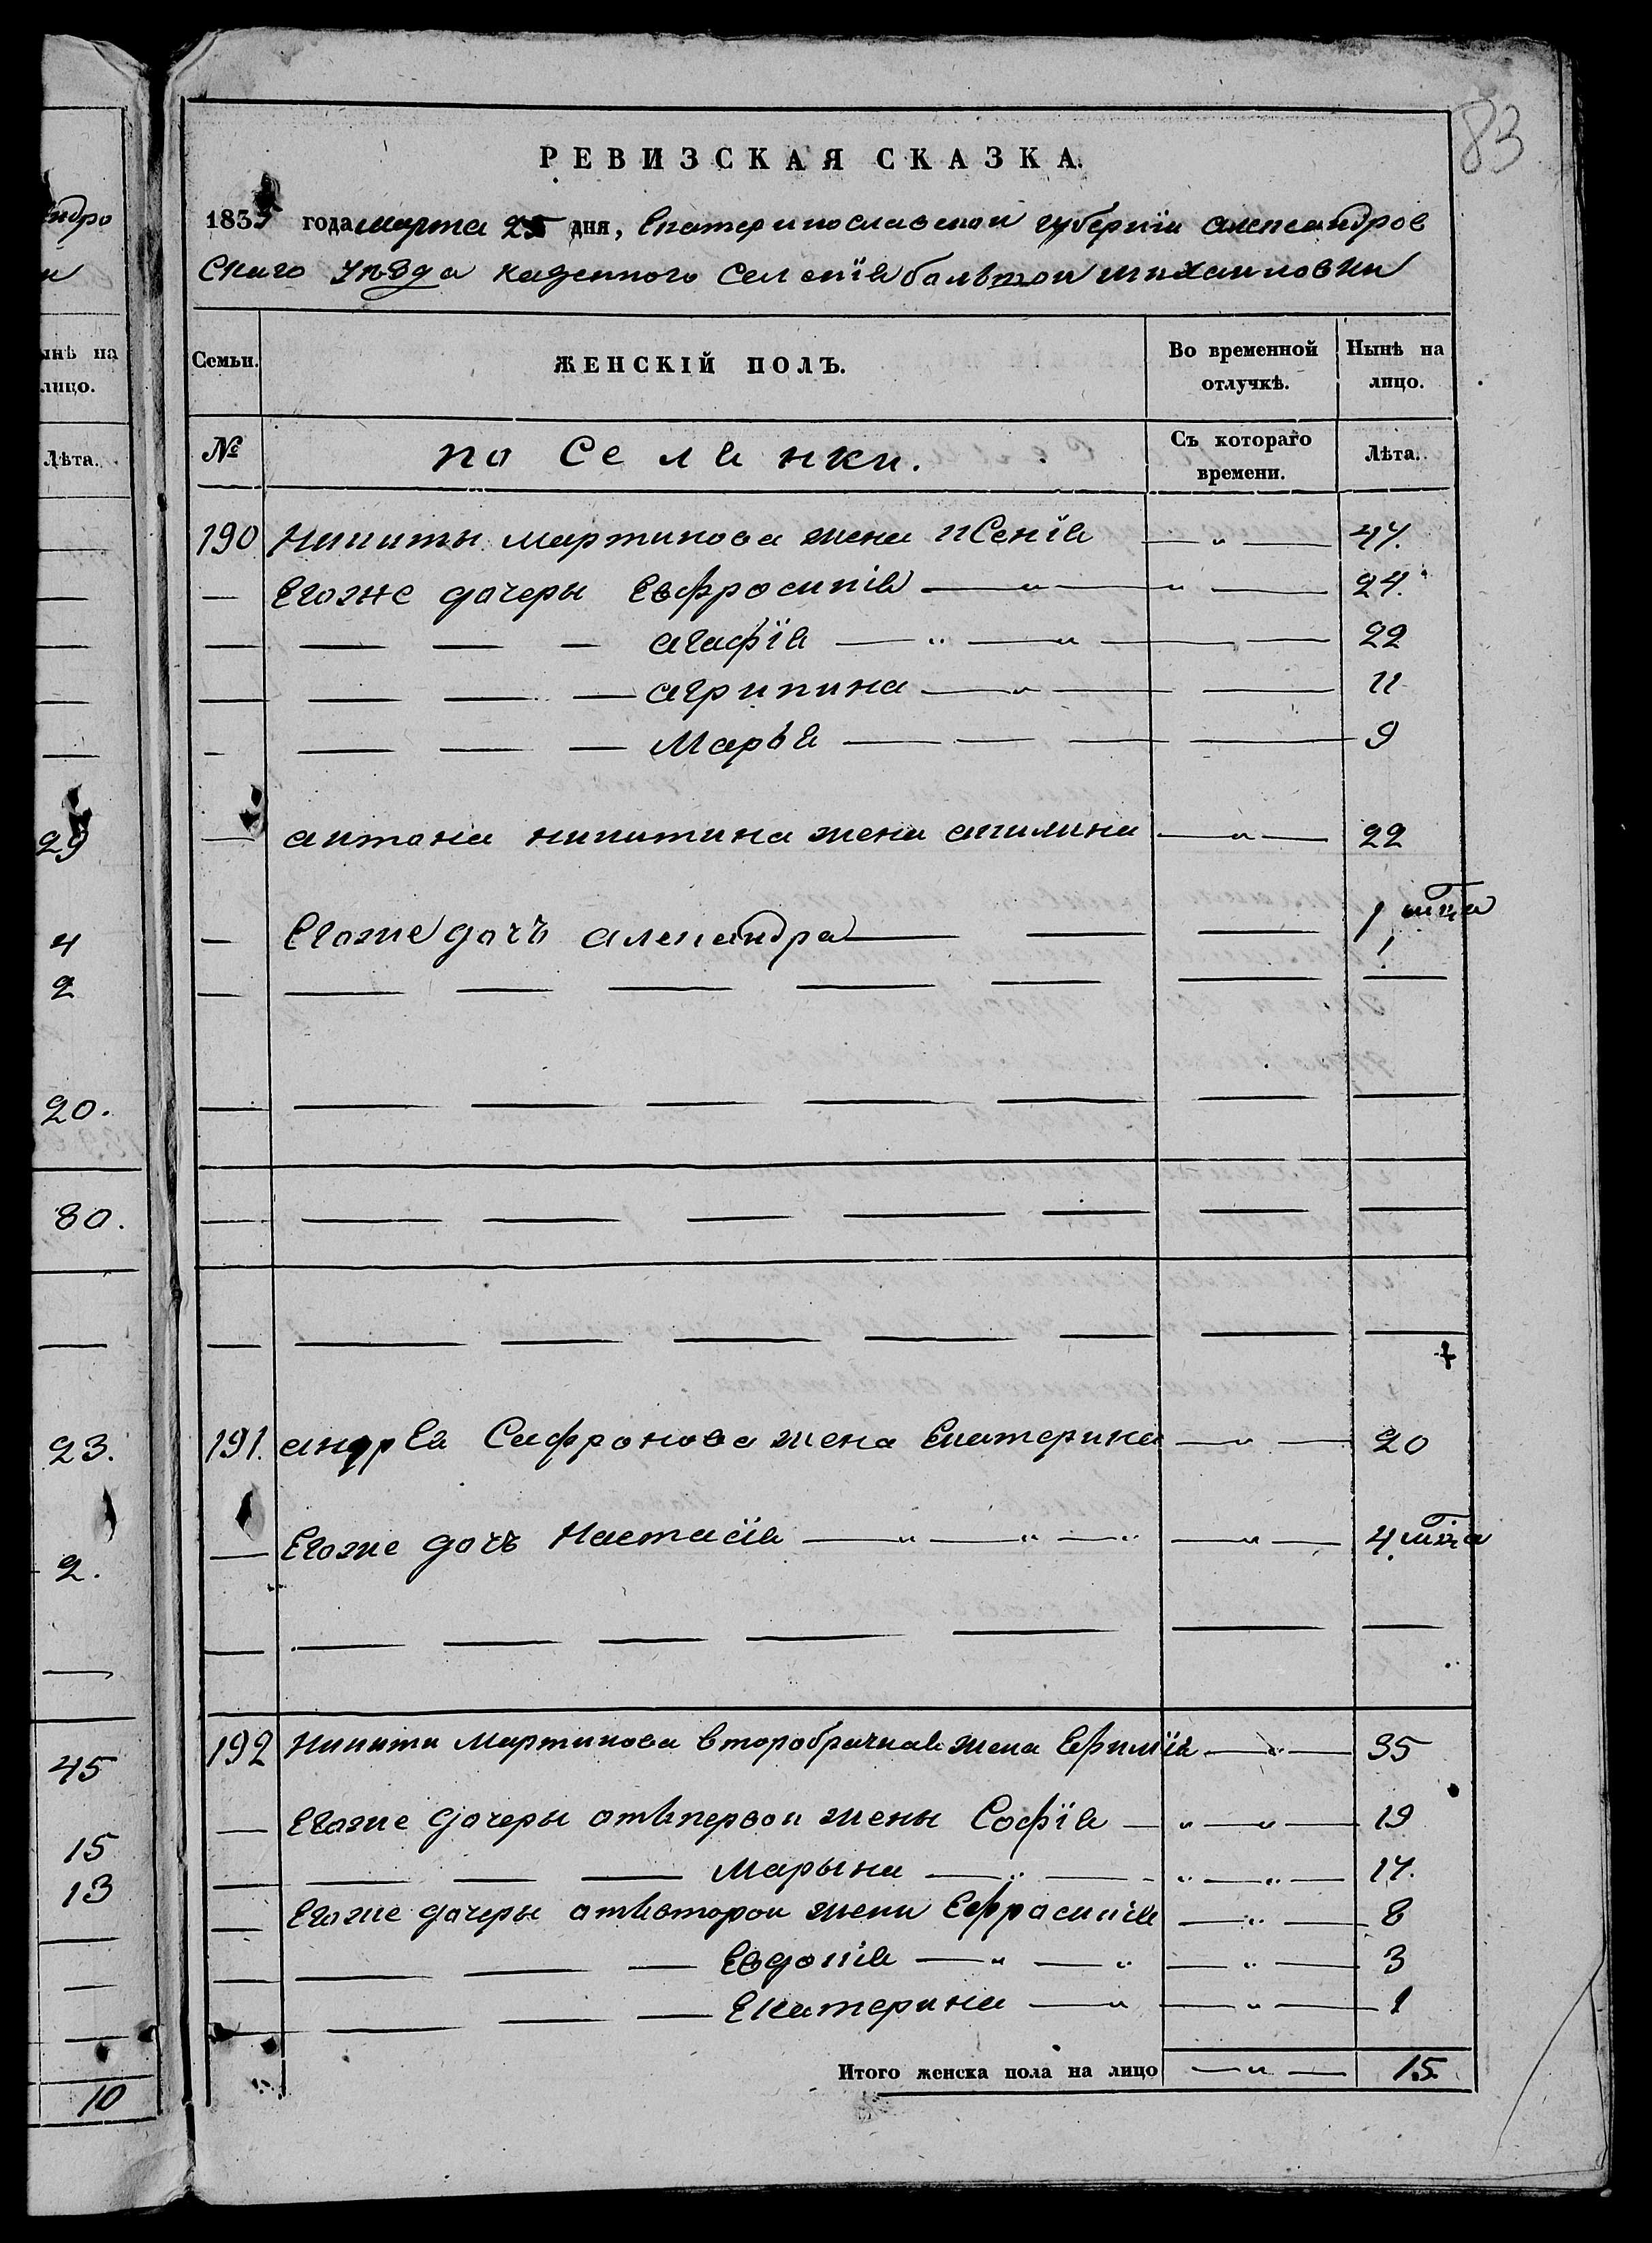 83
РЕВИЗСКАЯ СКАЗКА.
1835 года марта 25 дня, Екатеринославской губернїи александров
скаго уѣзда казенного селенїя большои михаиловки
Семьи. ЖЕНСКІЙ ПОЛЪ. Во временной отлучкѣ. Нынѣ на лицо.
№ поселянки. Съ котораго времени. Лѣта.
190 Никиты мартинова жена ксенїя — " — 47.
— Егоже дочеры Евфросинїя — " — " — 24.
— — — — агафїя — " — " — — 22
— — — — агрипина — " — — 11
— — — — Марья — — — — 9
— антона никитина жена акилина — " — 22
— Егоже дочь александра — — 1 мца
— — — — — — — —
— — — — — — — —
— — — — — — — —
— — — — — — — —
191. андрея Сафронова жена Екатерина — " — 20
— Егоже дочь Настасїя — " — " — " — " — 4 мца
— — — — — — — —
192 Никити Мартинова второбрачная жена Ефимїя — " — 35
— Егоже дочеры отъпервои жены Софїя — " — " — 19
— — — — марына — " — " — " — 17.
— Егоже дочеры отъвторои жени Ефросинїя — " — 8
— — — — Евдокїя — " — " — " — 3
— — — — Екатерина — " — " — 1
Итого женска пола на лицо — " — 15.
ндро
и
ынѣ на
лицо.
Лѣта.
29
4
2
20.
80.
23.
2.
45
15
13
10